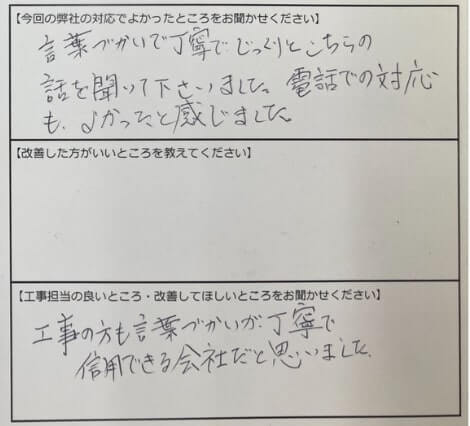 【今回の弊社の対応でよかったところをお聞かせください】
言葉づかいで丁寧でじっくりとこちらの
話を聞いて下さいました。電話での対応
も、よかったと感じました。
【改善した方がいいところを教えてください】
【工事担当の良いところ・改善してほしいところをお聞かせください】
工事の方も言葉づかいが丁寧で
信用できる会社だと思いました。